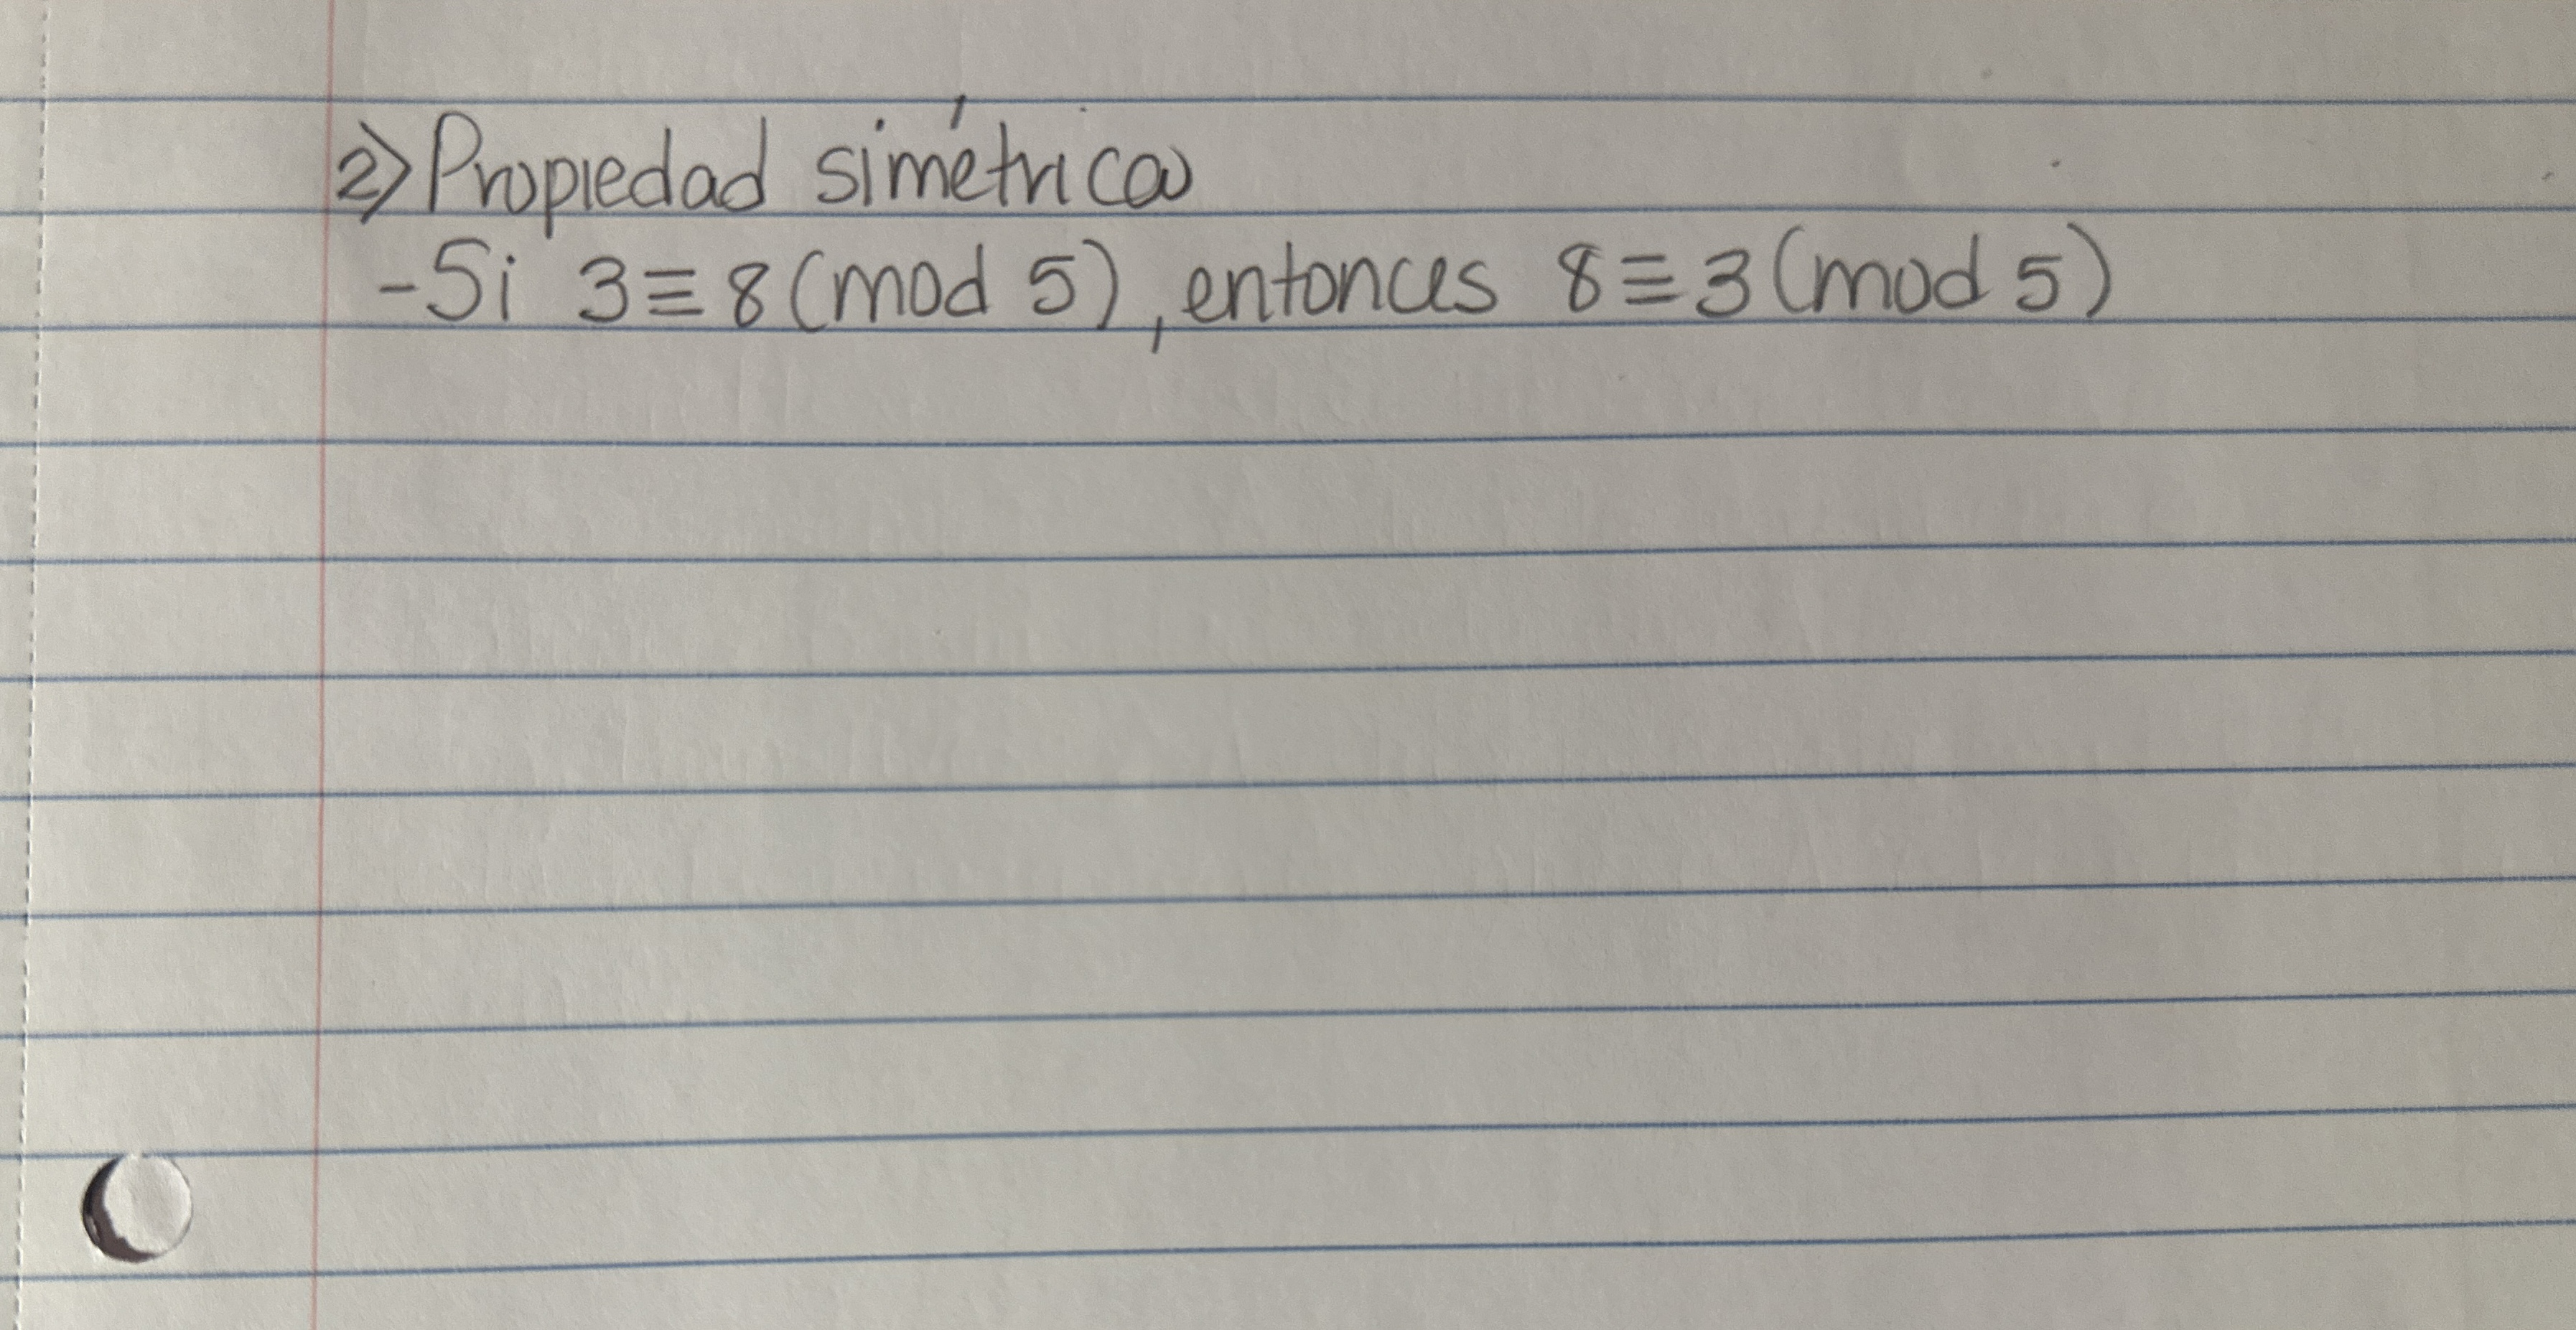 2) Propiedad simétrica
- Si 3 ≡ 8 (mod 5), entonces 8 ≡ 3 (mod 5)